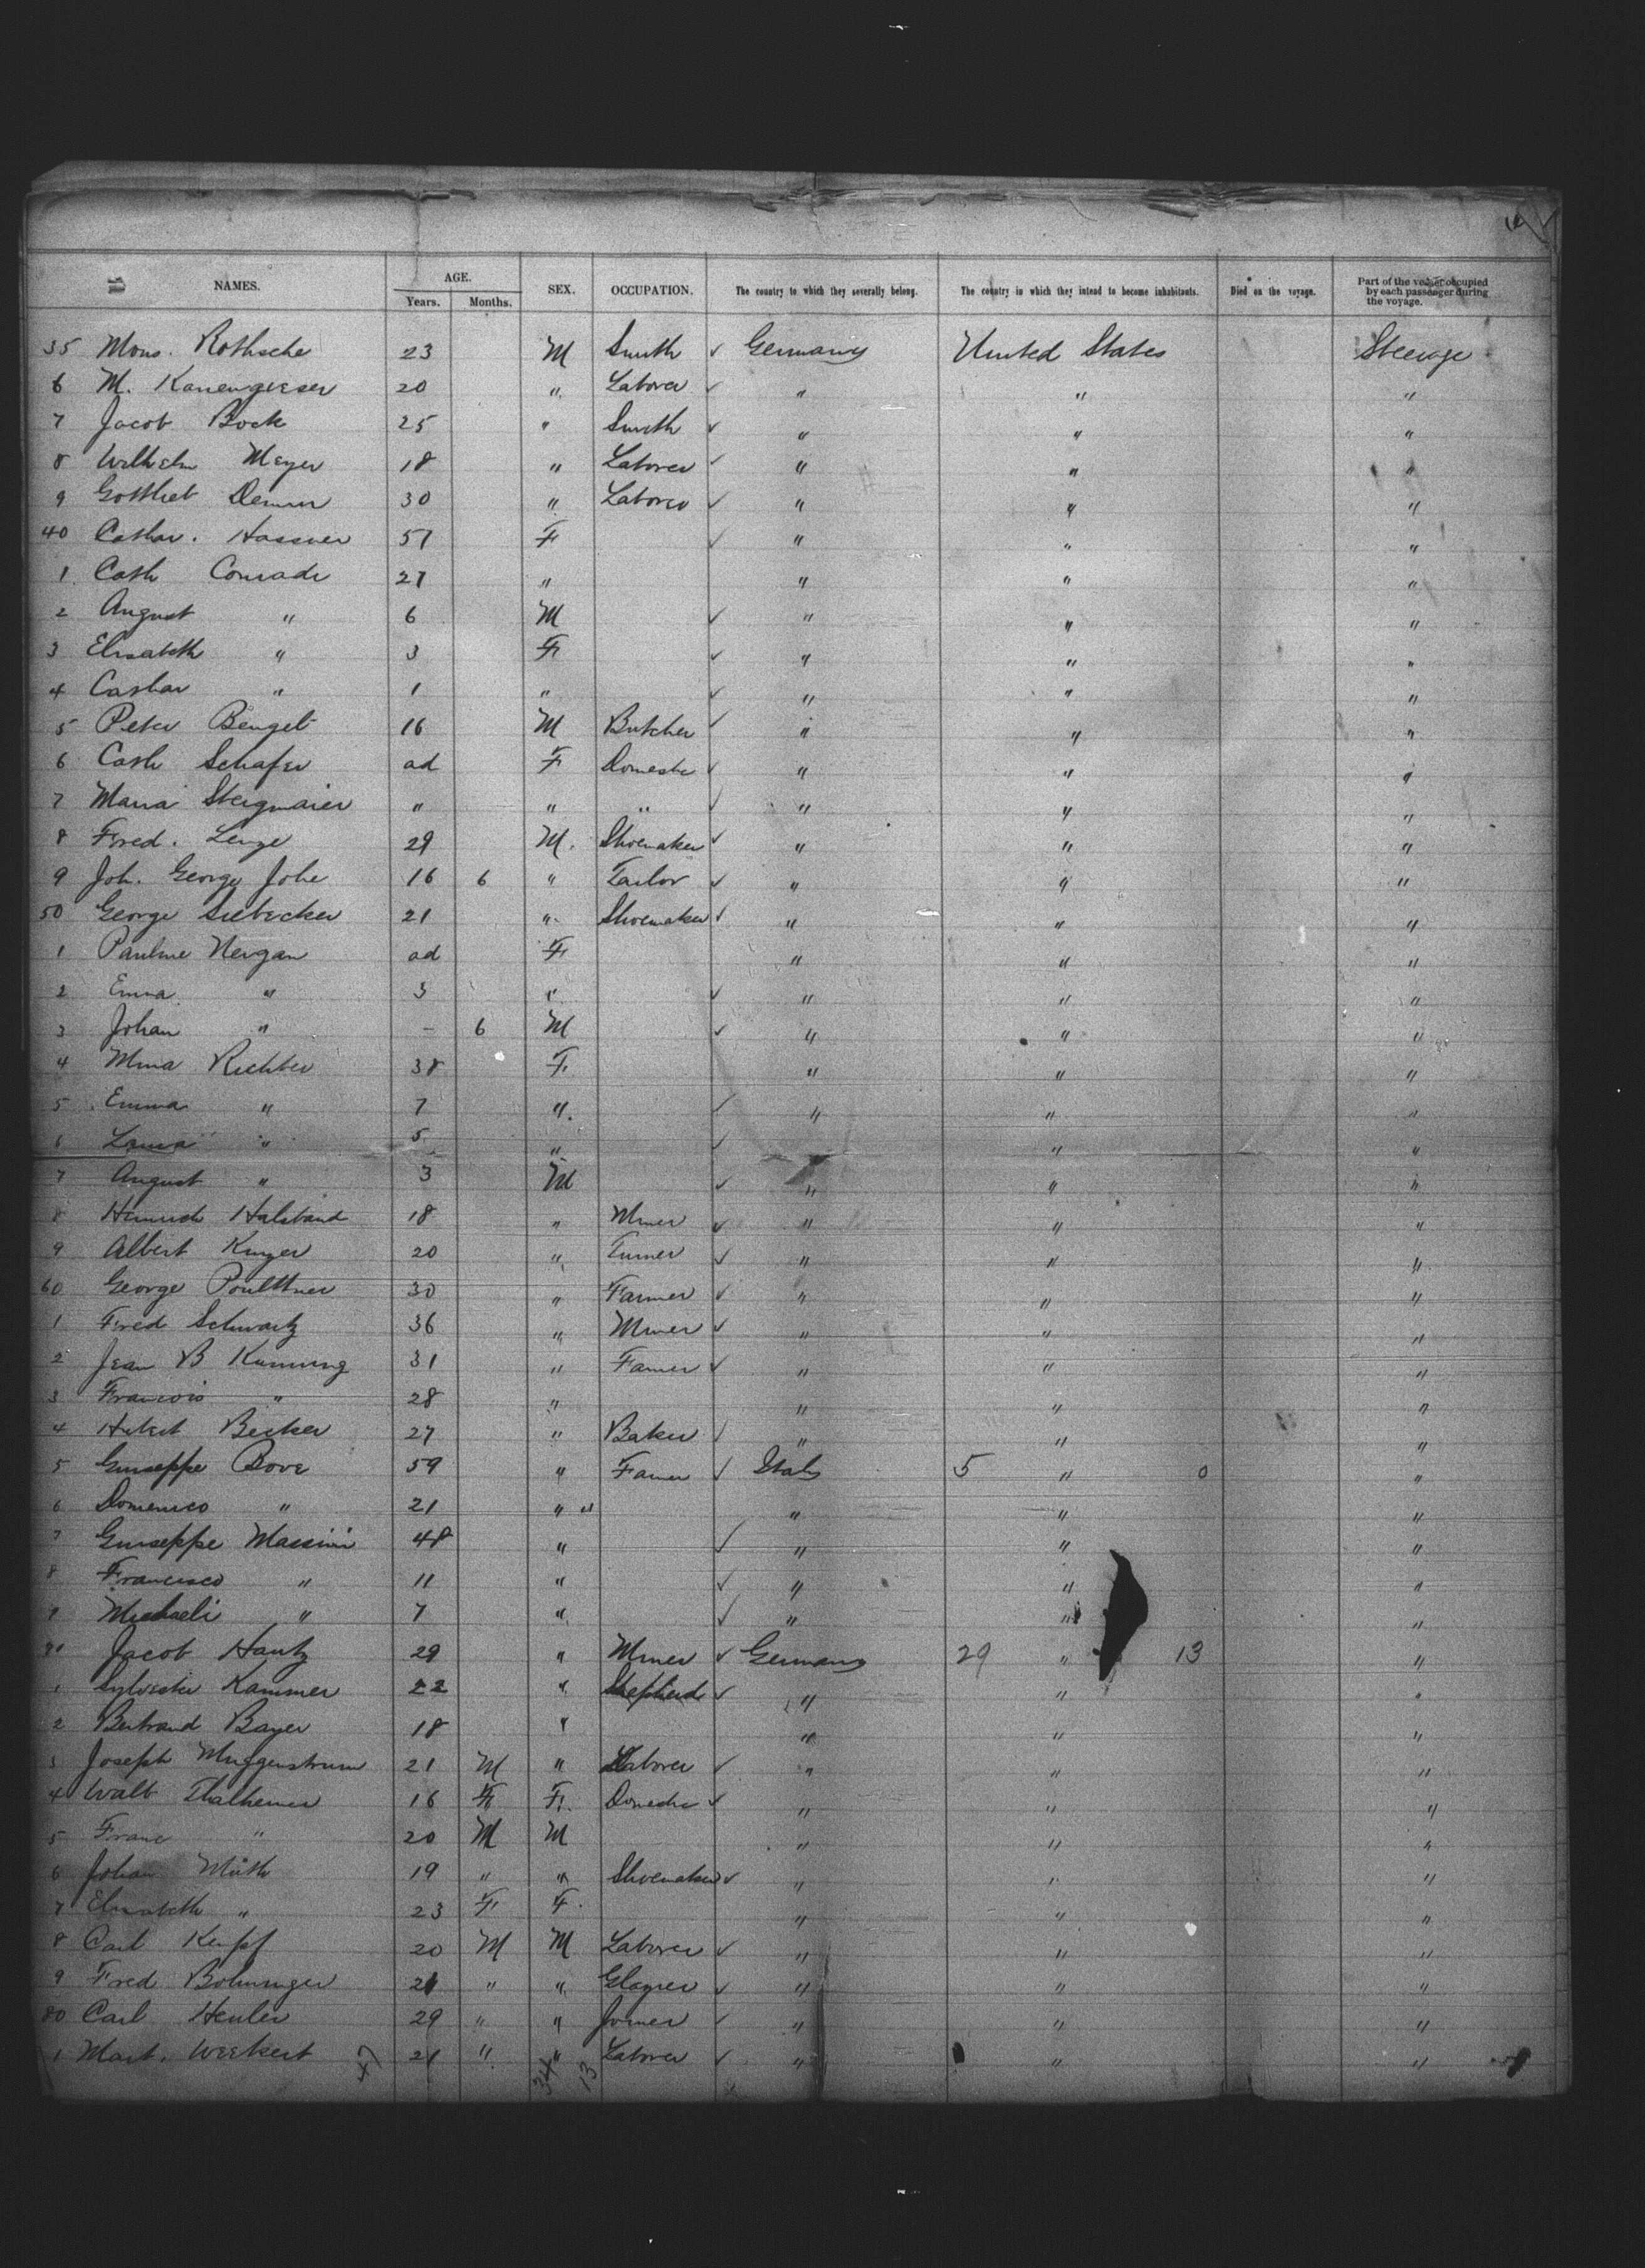 NAMES. AGE. SEX. OCCUPATION. The country to which they severally belong. The country in which they intend to become inhabitants. Died on the voyage. Part of the vessel occupied by each passenger during the voyage.
Years. Months.
35 Mons. Rothsche 23 M Smith ✓ Germany United States Steerage
6 M. Kanengieser 20 " Laborer ✓ " " "
7 Jacob Bock 25 " Smith ✓ " " "
8 Wilhelm Meyer 18 " Laborer ✓ " " "
9 Gottlieb 30 " Laborer ✓ " " "
40 Cathar. Hassner 57 F ✓ " " "
1 Cath Conrade 27 " " " "
2 August " 6 M ✓ " " "
3 Elisabeth " 3 F ✓ " " "
4 Cathar " 1 " ✓ " " "
5 Peter Bengel 16 M Butcher ✓ " " "
6 Cath Schafer ad F Domestic ✓ " " "
7 Maria Steigmaier " " " ✓ " " "
8 Fred. Lenze 29 M. Shoemaker ✓ " " "
9 Joh. George Johe 16 6 " Tailor ✓ " " "
50 George Siebecker 21 " Shoemaker ✓ " " "
1 Pauline Nergan ad F " " "
2 Emma " 3 " ✓ " " "
3 Johan " – 6 M ✓ " " "
4 Mina Richter 38 F " " "
5 Emma " 7 " ✓ " " "
6 Laura " 5 " ✓ " " "
7 August " 3 M ✓ " " "
8 Heinrich Halsband 18 " Miner ✓ " " "
9 Albert 20 " Turner ✓ " " "
60 George Poulttner 30 " Farmer ✓ " " "
1 Fred Schwartz 36 " Miner ✓ " " "
2 Jean B Kunning 31 " Famer ✓ " " "
3 Francois " 28 " " " "
4 Becker 27 " Baker ✓ " " "
5 Giuseppe Bove 59 " Famer ✓ Italy 5 " 0 "
6 Domenico " 21 " " " " "
7 Giuseppe Massini 48 " ✓ " " "
8 Francisco " 11 " ✓ " " "
9 Michaeli " 7 " ✓ " " "
70 Jacob Hautz 29 " Miner ✓ Germany 29 " 13 "
1 Sylvester Kammer 22 " Shepherd ✓ " " "
2 Bertrand Bayer 18 " " " "
3 Joseph Muggenstrum 21 M " Laborer ✓ " " "
4 Walb Thalheimer 16 F F. Domestic ✓ " " "
5 Franc " 20 M M " " "
6 Johan Müth 19 " " Shoemaker ✓ " " "
7 Elisabeth " 23 F F. " " "
8 Carl Kempf 20 M M Laborer ✓ " " "
9 Fred Bohninger 21 " " Glazier ✓ " " "
80 Carl Henler 29 " " Joiner ✓ " " "
1 Mart. Weekert 21 " " Laborer ✓ " " "
47 34 13